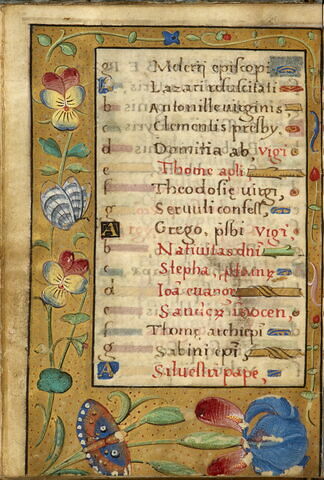 g Meterij episcopi
A Lazari resuscitati
b Antonille virginis,
c Clementis presby,
d Dometia ab, vigi
e Thome apli
f Theodosie virgi,
g Seruuli confess,
A Grego, psbi vigi
b Natiuitas dni
c Stepha,
d Ioā euange
e Sanctor inocen,
f Thome archiepi
g Sabini epi,
A Siluestri pape,